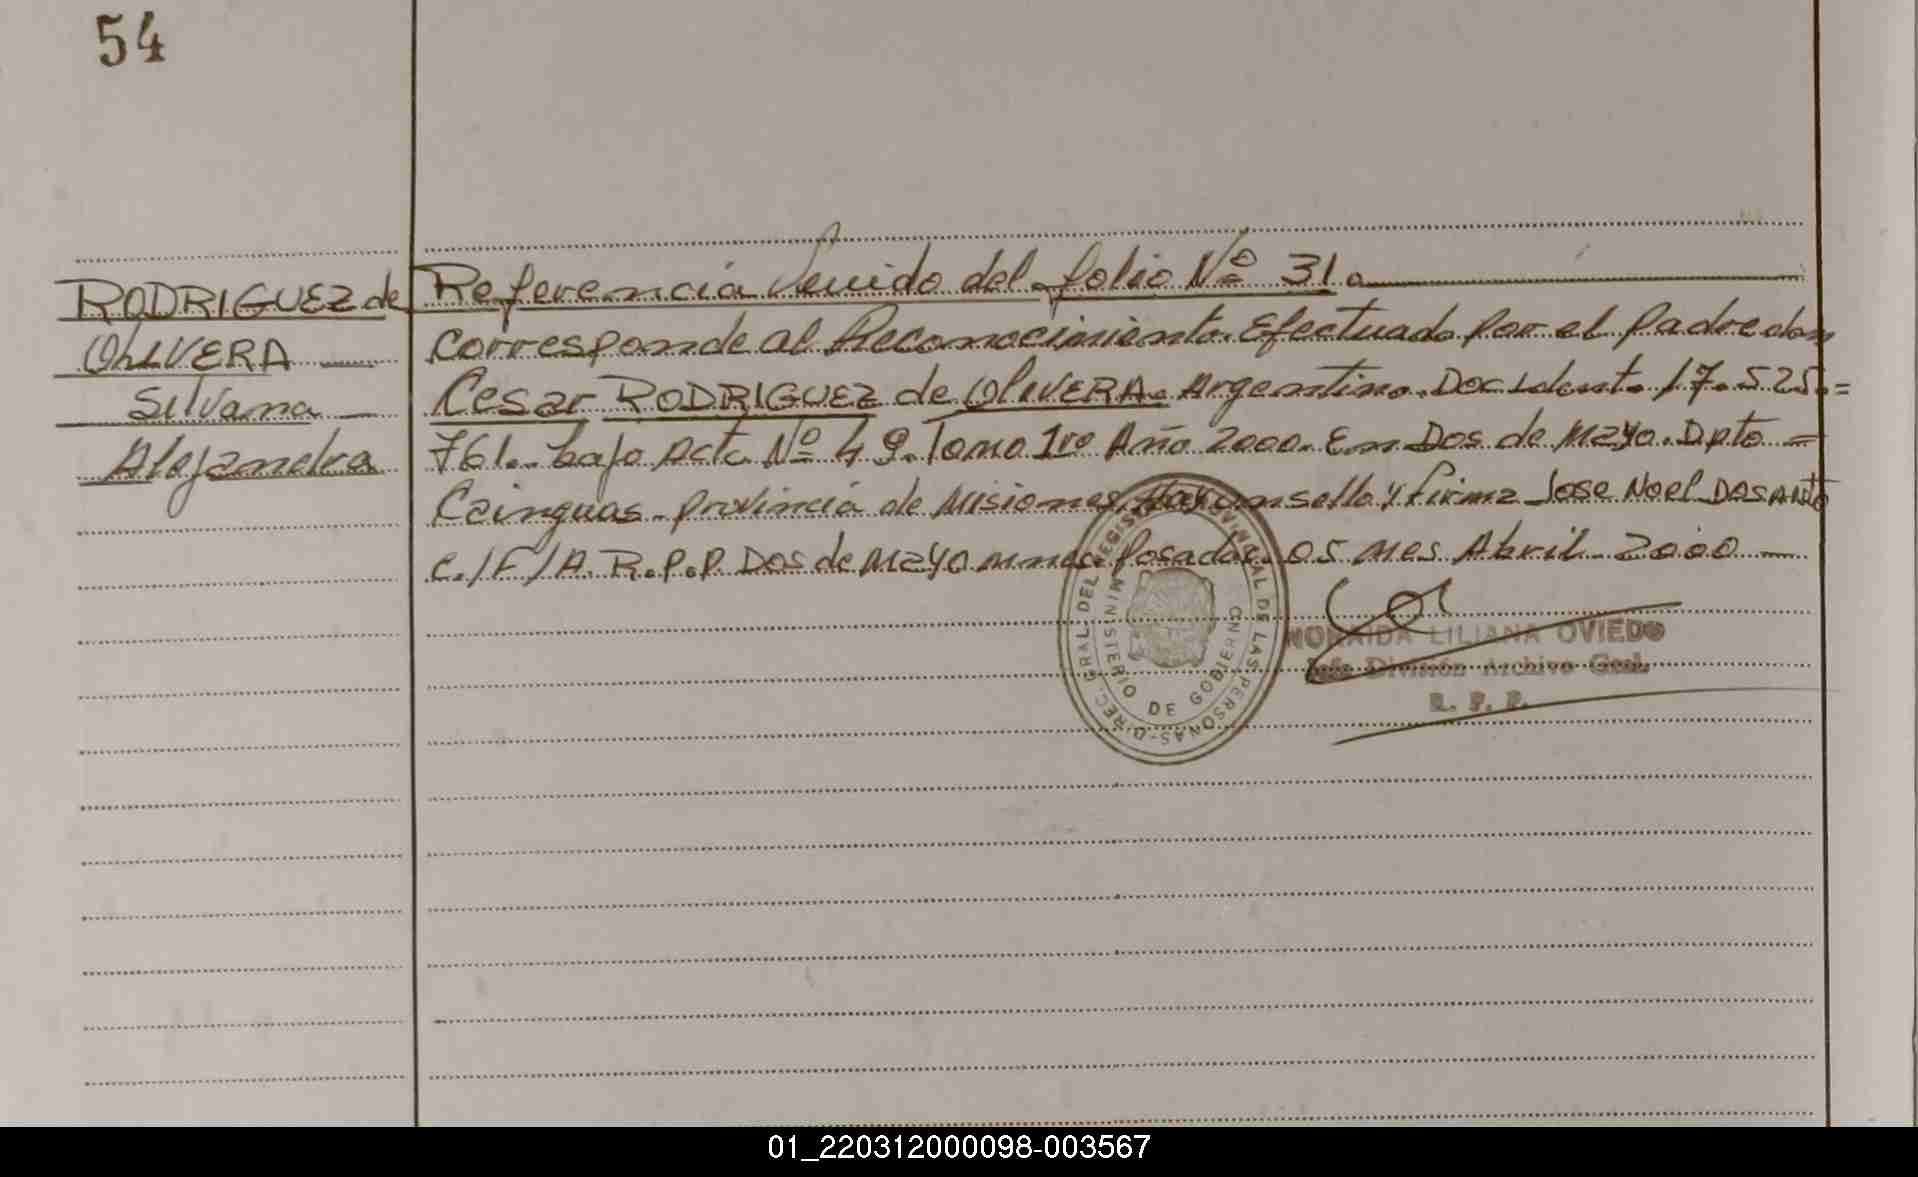 54
RODRIGUEZ de
OLIVERA
Silvana
Alejandra
Referencia Venido del folio Nº 31.
Corresponde al Reconocimiento. Efectuado por el padre don
Cesar RODRIGUEZ de OLIVERA. Argentino. Doc Ident. 17.525.=
761. bajo Acta Nº 49. Tomo 1ro Año 2000. En Dos de Mayo. Dpto =
Cainguas. provincia de Misiones. Hay un sello y firma Jose Noel DOSANTO
c./F/A. R.P.P. Dos de Mayo mnes. Posadas. 05 mes Abril 2000
NORAIDA LILIANA OVIEDO
Jefe División Archivo Gral.
R. P. P.
DIREC. GRAL. DEL REGISTRO PROVINCIAL DE LAS PERSONAS
MINISTERIO DE GOBIERNO
01_220312000098-003567